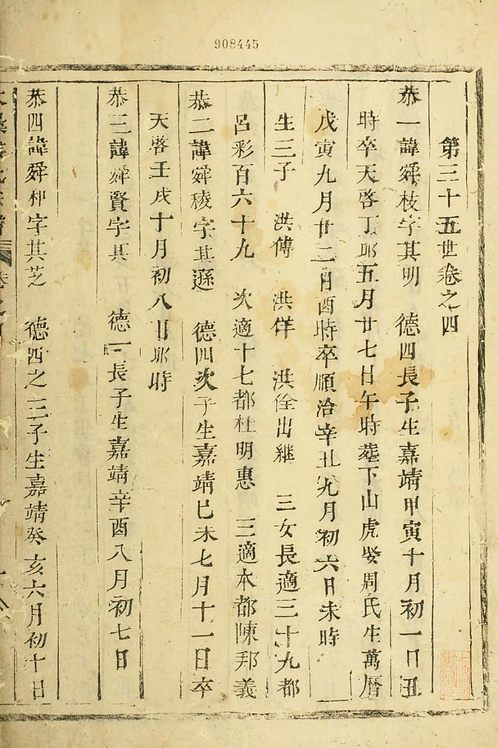 908445
第三十五世卷之四
恭一諱舜枝字其明 德四長子生嘉靖甲寅十月初一日丑
時卒天啓丁卯五月廿七日午時葬下山虎娶周氏生萬曆
戊寅九月廿二日酉時卒順治辛丑九月初六日未時
生三子 洪傳 洪佯 洪佺出繼 三女長適三十九都
呂彩百六十九 次適十七都杜明惠 三適本都陳邦義
恭二諱舜稜字其遜 德四次子生嘉靖已未七月十一日卒
天啓壬戌十月初八日卯時
恭三諱舜賢字其 德一長子生嘉靖辛酉八月初七日
恭四諱舜和字其芝 德四之三子生嘉靖癸亥六月初十日